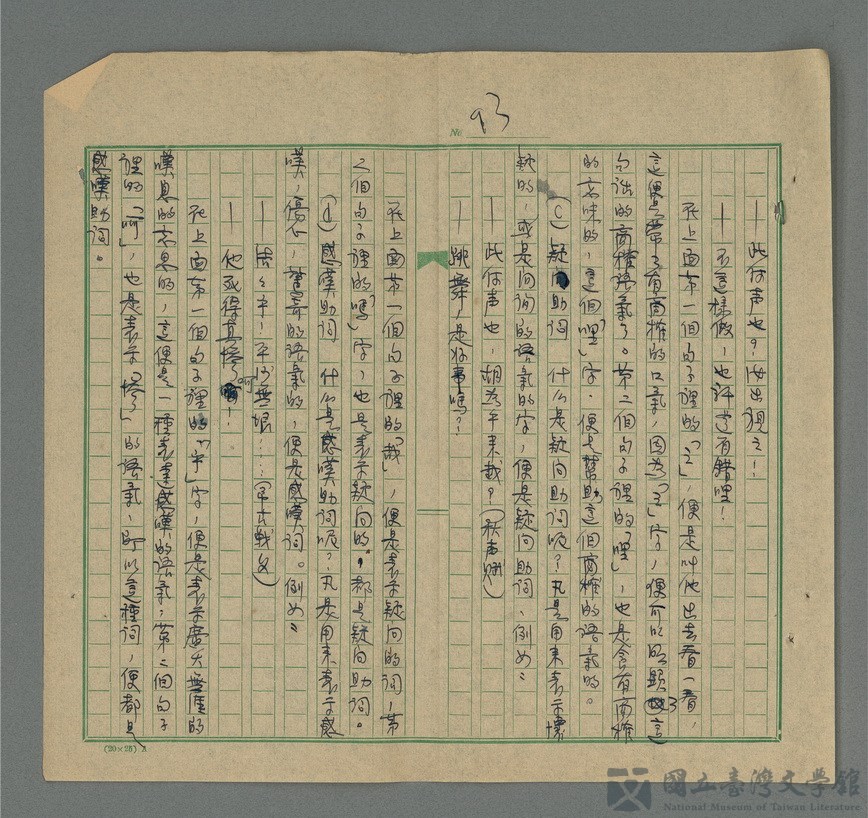 No 93
—此何声也?汝出視之!
—不這樣做,也許還有錯哩!
在上面第一個句子裡的「之」,便是叫他出去看一看,
這便是帶了有商榷的口氣,因為「之」字,便可以明顯了這
句話的商榷語氣了。第二個句子裡的「哩」,也是含有商榷
的意味的,這個「哩」字,便是幫助這個商榷的語氣的。
(C)疑問助詞 什么是疑问助词呢?凡是用来表示懷
疑的,或是问询的語氣的字,便是疑问助词、例如:
—此何声也,胡為乎来哉?(秋声賦)
—跳舞,是好事嗎?
在上面第一個句子裡的「哉」,便是表示疑问的词,第
二個句子裡的「嗎」字,也是表示疑问的,都是疑问助词。
(d)感嘆助词 什么是感嘆助词呢?凡是用来表示感
嘆,傷心,驚奇的语氣的,便是感嘆词。例如:
—浩々乎!平沙無垠!…(吊古戰场)
—他死得真慘了呵!
在上面第一個句子裡的「乎」字,便是表示廣大無崖的
嘆息的意思的,這便是一種表達感嘆的语氣,第二個句子
裡的「呵」,也是表示「慘了」的语氣,所以這種词,便都是
感嘆助词。
(20×25) A
國立臺灣文學館
National Museum of Taiwan Literature